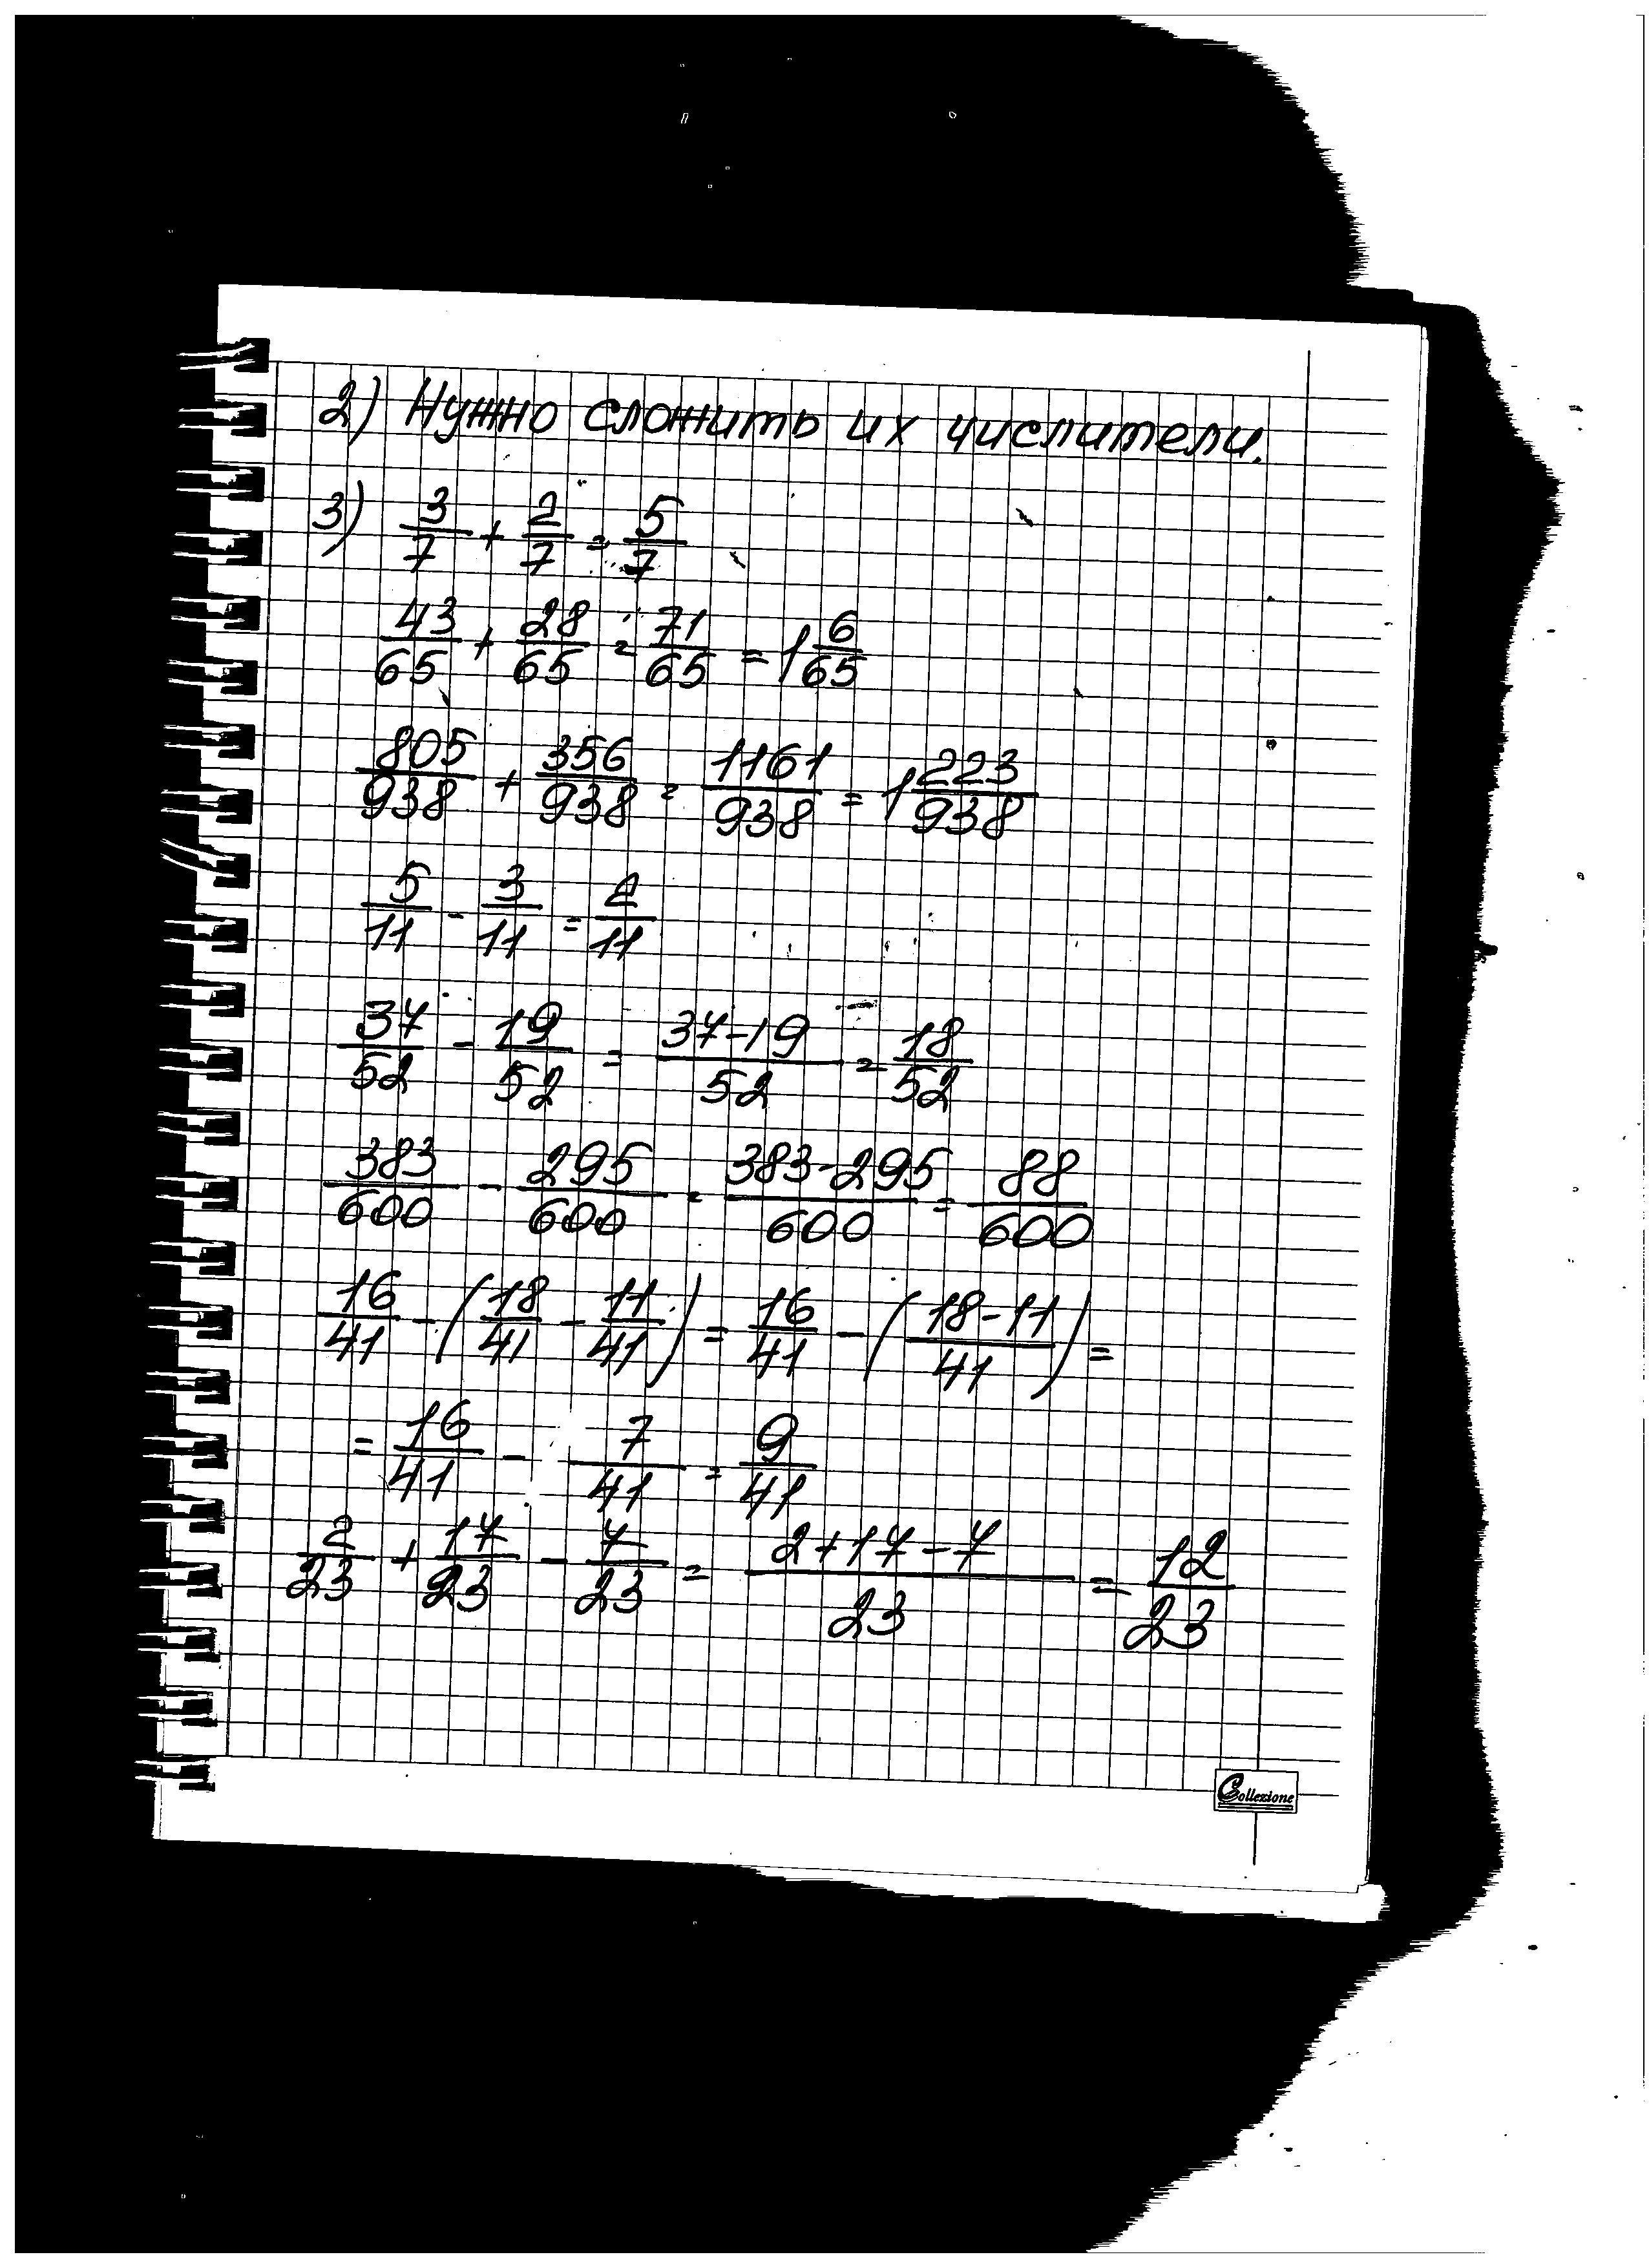 2) Нужно сложить их числители.
3) 3/7 + 2/7 = 5/7
43/65 + 28/65 = 71/65 = 1 6/65
805/938 + 356/938 = 1161/938 = 1 223/938
5/11 - 3/11 = 2/11
37/52 - 19/52 = 37-19/52 = 18/52
383/600 - 295/600 = 383-295/600 = 88/600
16/41 - (18/41 - 11/41) = 16/41 - (18-11/41) =
= 16/41 - 7/41 = 9/41
2/23 + 17/23 - 7/23 = 2+17-7/23 = 12/23
Collezione